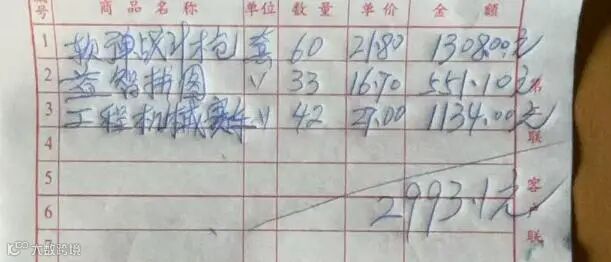 编号 商品名称 单位 数量 单价 金额
1 软弹战斗枪 套 60 21.80 1308.00元
2 益智拼图 〃 33 16.70 551.10元
3 工程机械赛车 〃 42 27.00 1134.00元
4
5
6 2993.1元
名联
客户联
大数跨境